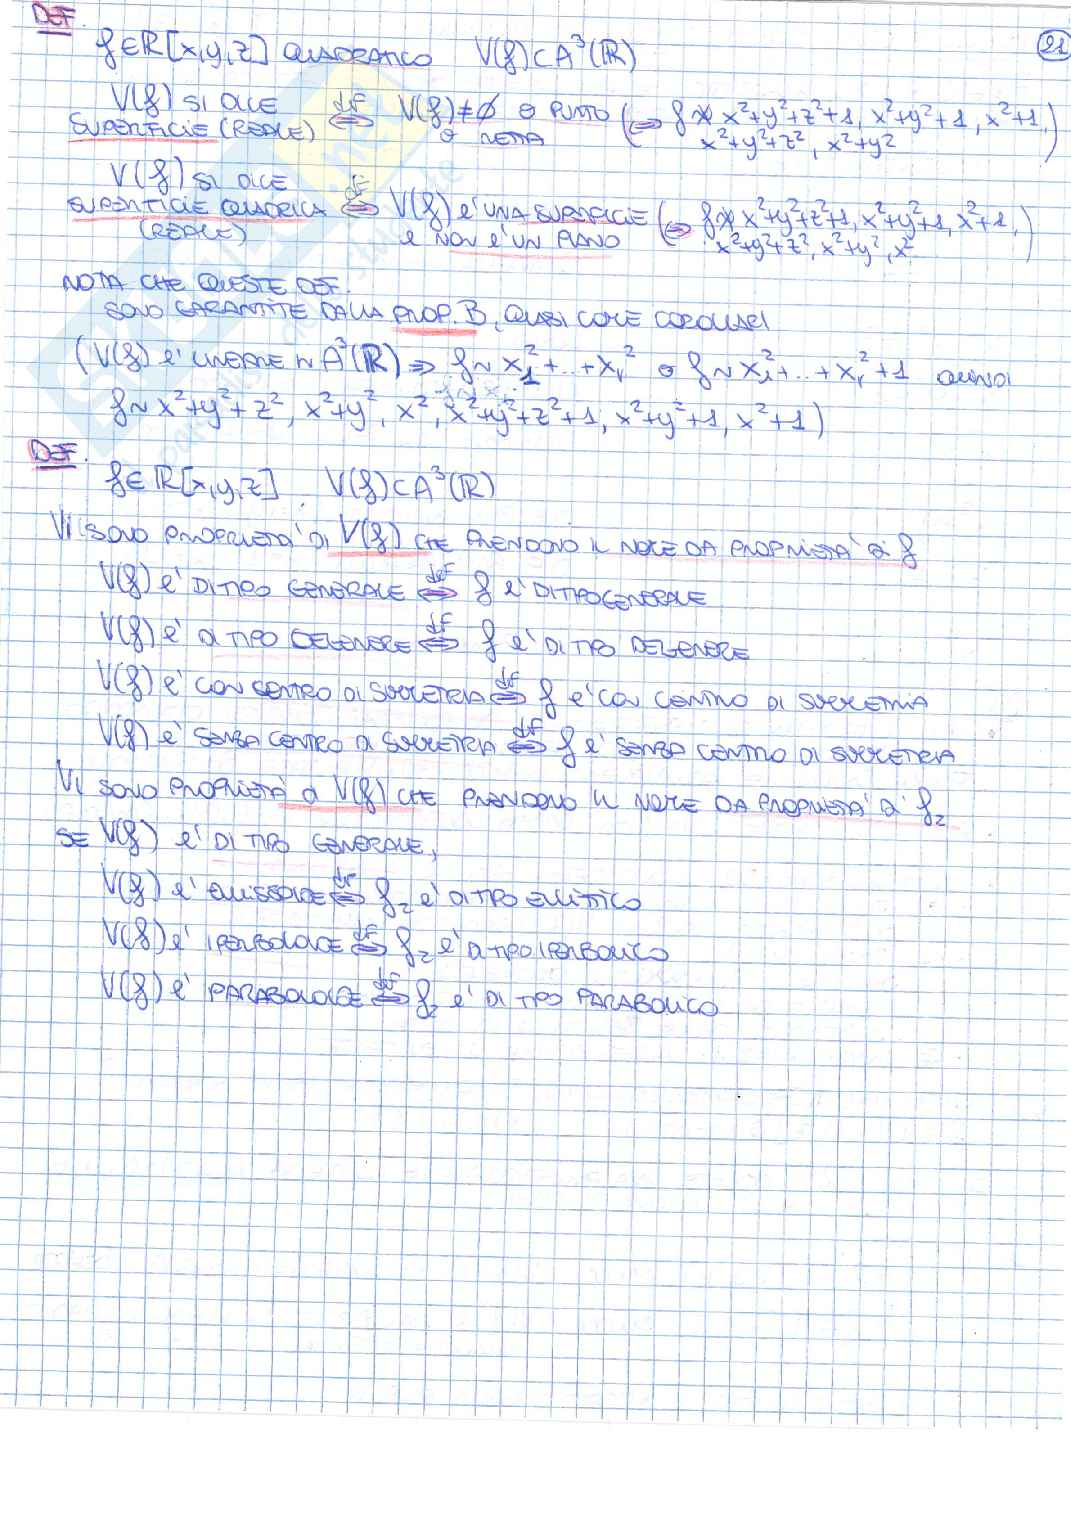 DEF.
f∈ℝ[x,y,z] QUADRATICO V(f)⊂A³(ℝ)
21
V(f) SI DICE SUPERFICIE (REALE) ⇔def V(f)≠∅ O PUNTO O RETTA (⇔ f≁ x²+y²+z²+1, x²+y²+1, x²+1, x²+y²+z², x²+y²)
V(f) SI DICE SUPERFICIE QUADRICA (REALE) ⇔def V(f) È UNA SUPERFICIE E NON È UN PIANO (⇔ f≁ x²+y²+z²+1, x²+y²+1, x²+1, x²+y²+z², x²+y², x²)
NOTA CHE QUESTE DEF.
SONO GARANTITE DALLA PROP. B, QUASI COME COROLLARI
(V(f) È LINEARE IN A³(ℝ) ⇒ f~ x₁²+..+xᵣ² O f~ x₁²+..+xᵣ²+1 QUINDI
f~ x²+y²+z², x²+y², x², x²+y²+z²+1, x²+y²+1, x²+1)
DEF.
f∈ℝ[x,y,z] V(f)⊂A³(ℝ)
VI SONO PROPRIETÀ DI V(f) CHE PRENDONO IL NOME DA PROPRIETÀ DI f
V(f) È DI TIPO GENERALE ⇔def f È DI TIPO GENERALE
V(f) È DI TIPO DEGENERE ⇔def f È DI TIPO DEGENERE
V(f) È CON CENTRO DI SIMMETRIA ⇔def f È CON CENTRO DI SIMMETRIA
V(f) È SENZA CENTRO DI SIMMETRIA ⇔def f È SENZA CENTRO DI SIMMETRIA
VI SONO PROPRIETÀ DI V(f) CHE PRENDONO IL NOME DA PROPRIETÀ DI f₂
SE V(f) È DI TIPO GENERALE,
V(f) È ELLISSOIDE ⇔def f₂ È DI TIPO ELLITTICO
V(f) È IPERBOLOIDE ⇔def f₂ È DI TIPO IPERBOLICO
V(f) È PARABOLOIDE ⇔def f₂ È DI TIPO PARABOLICO